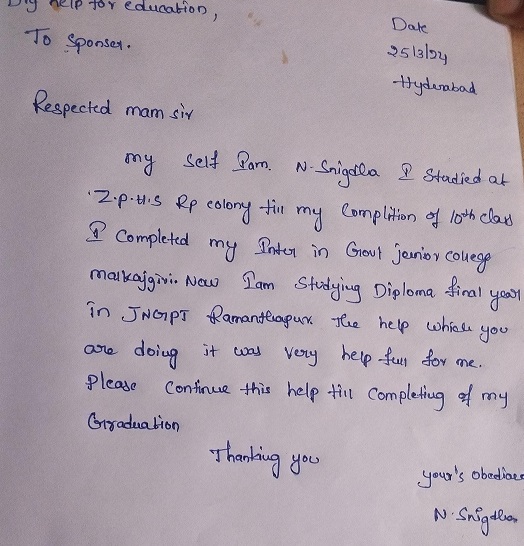 help for education,
Date
To Sponser.
25/3/24
Hyderabad
Respected mam sir
my Self Iam. N. Snigdha I Studied at
Z.p.H.S Rp colony till my Complition of 10th class
I Completed my Inter in Govt jeunior college
malkajgiri. Now Iam Studying Diploma final year
in JNGPT Ramanthapur. The help which you
are doing it was very help full for me.
Please Continue this help till Completing of my
Graduation
Thanking you
your's obediace
N. Snigdha